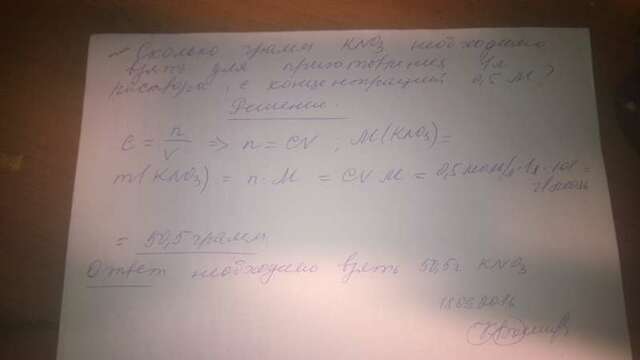 ~ Сколько грамм KNO₃ необходимо
взять для приготовления 1л
раствора с концентрацией 0,5 М?
Решение.
C = n/V => n = CV ; M(KNO₃) =
m(KNO₃) = n · M = CVM = 0,5 моль/л · 1л · 101 г/моль =
= 50,5 грамм
Ответ необходимо взять 50,5г KNO₃